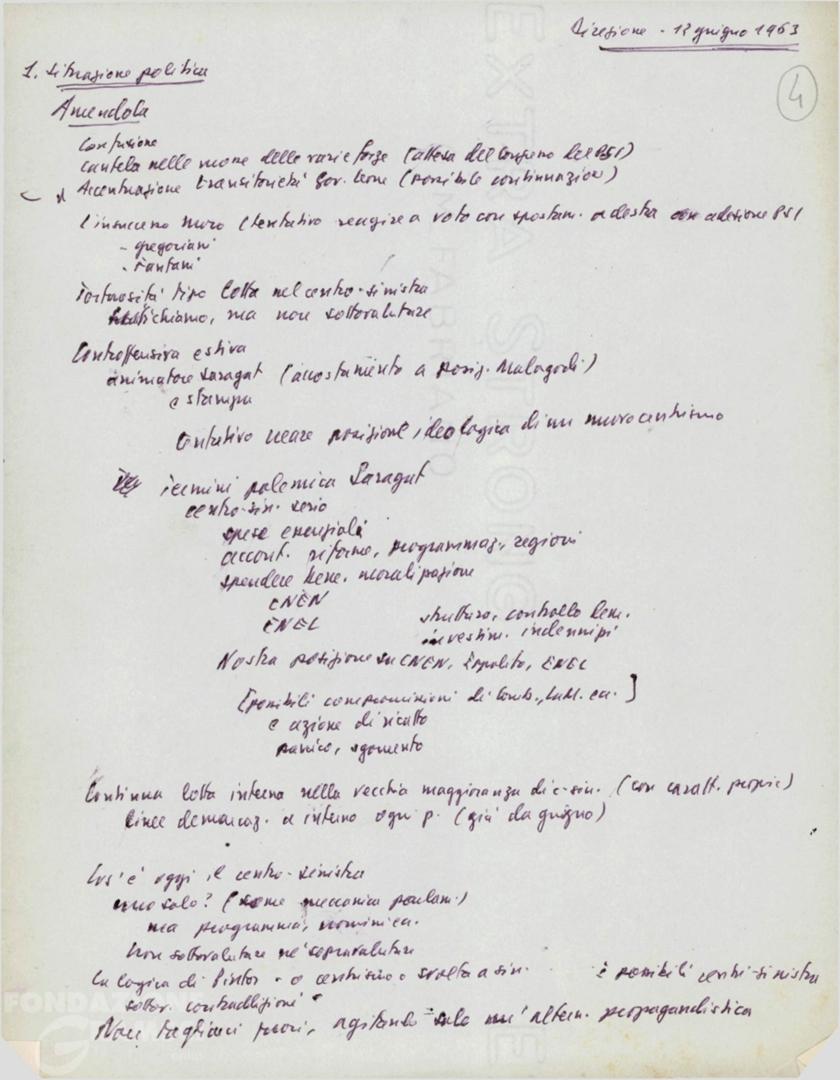 Direzione - 12 giugno 1963
4
1. Situazione politica
Amendola
Confusione
cautela nelle mosse delle varie forze (attesa del Congresso del PSI)
Accentuazione transitorietà Gov. Leone (possibile continuazione)
L'insuccesso Moro (tentativo reagire a voto con spostam. a destra con adesione PSI
- gregoriani
- Fanfani
Tortuosità tipo lotta nel centro-sinistra
, ma non sottovalutare
Controffensiva estiva
animatore Saragat (accostamento a posiz. Malagodi)
e stampa
tentativo creare posizione ideologica di un nuovo centrismo
Termini polemica Saragat
centro-sin. serio
spese essenziali
accant. riforme, programmaz., regioni
spendere bene. moralizzazione
CNEN
ENEL
struttura, controllo dem.
investim. indennizzi
Nostra posizione su CNEN, Ippolito, ENEL
[possibili compromissioni di Lomb., ca. ]
e azione di ricatto
panico, sgomento
Continua lotta interna nella vecchia maggioranza di c-sin. (con caratt. proprie)
linee demarcaz. a interno ogni p. (già da giugno)
Cos'è oggi il centro-sinistra
uno solo? ( meccanica parlam.)
ma programma,
Non sottovalutare né sopravalutare
La logica di Pintor - o centrismo o svolta a sin.
è possibili centri-sinistra
sottov. contraddizioni
Non tagliarci fuori, agitando solo un'altern. propagandistica
EXTRA STRONG
FABRIANO
FONDAZIONE
G